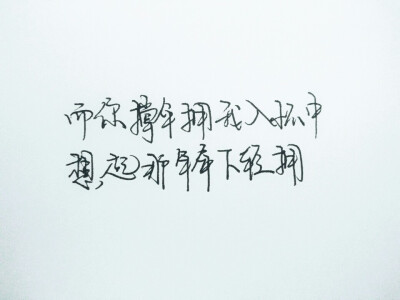 而你撑伞拥我入怀中
想起那年伞下轻拥